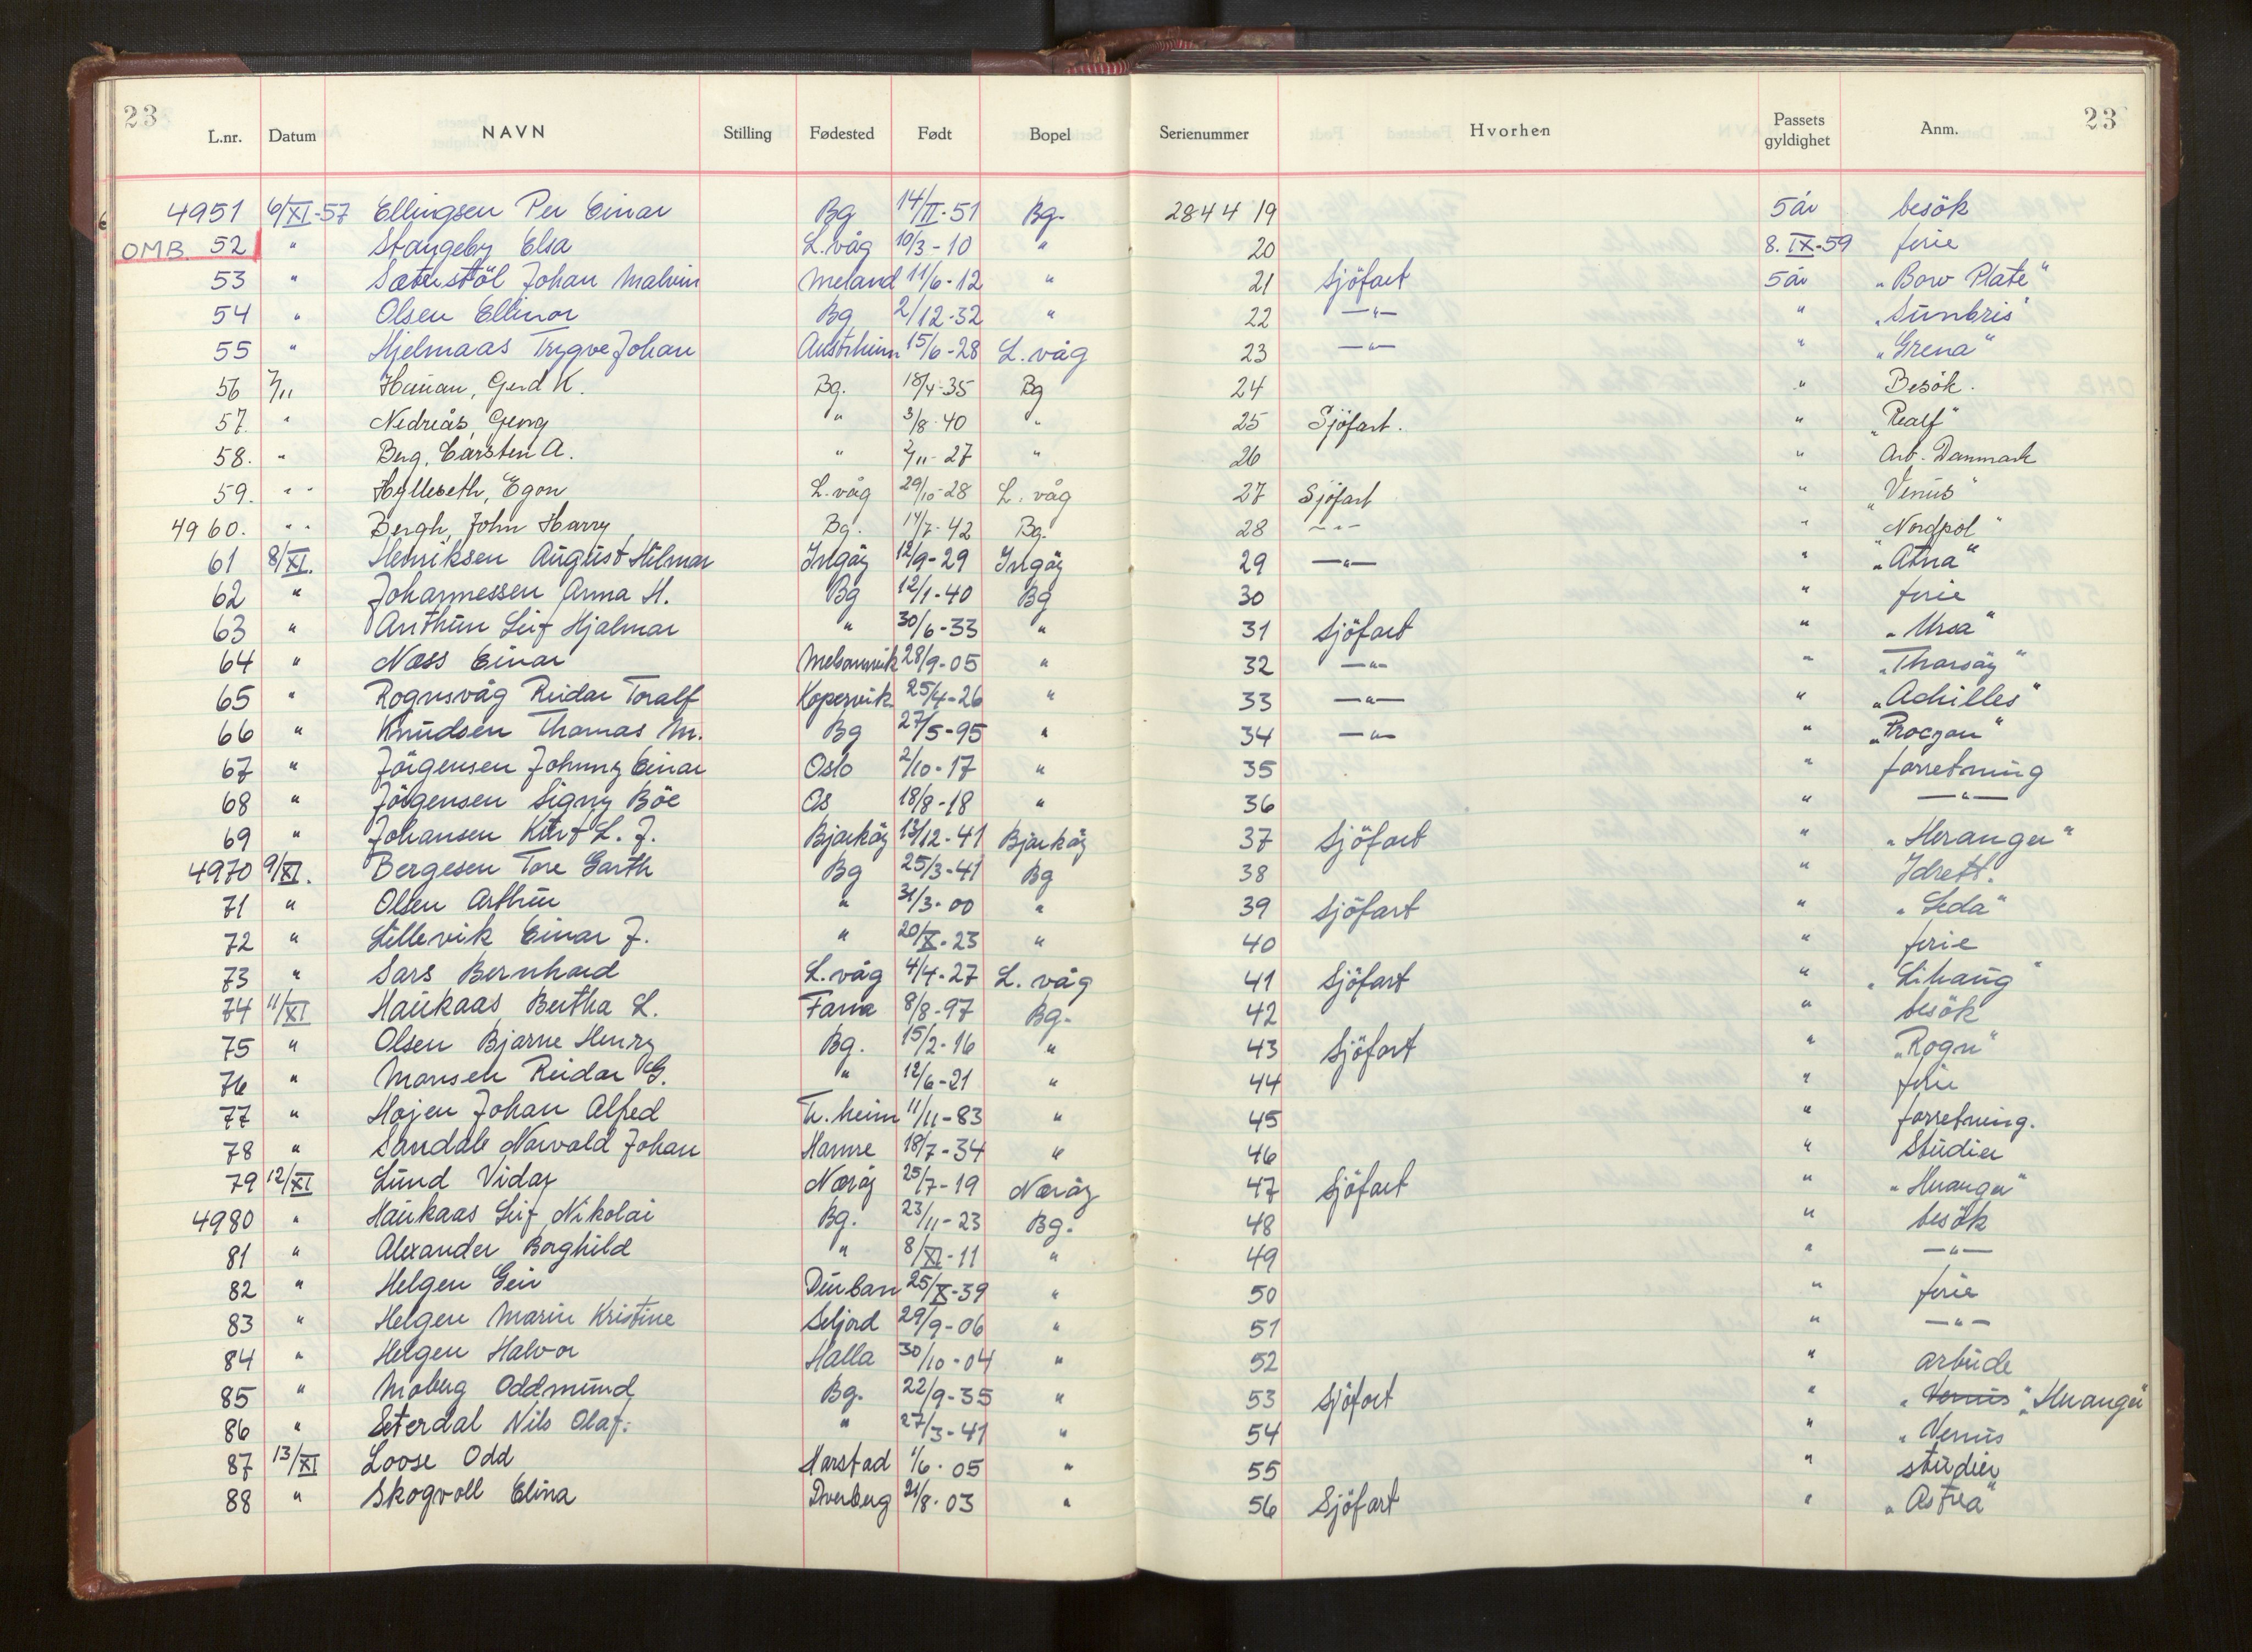 23 23
L.nr. Datum NAVN Stilling Fødested Født Bopel Serienummer Hvorhen Passets gyldighet Anm.
4951 6/XI-57 Ellingsen Per Einar Bg 14/II-51 Bg. 284419 5 år besök
OMB. 52 " Stangeby Elsa L.våg 10/3-10 " 20 8.IX-59 ferie
53 " Sæterstöl Johan Malvin Meland 11/6-12 " 21 Sjöfart 5 år "Bow Plate"
54 " Olsen Ellinor Bg 2/12-32 " 22 —"— " "Sunbris"
55 " Hjelmaas Trygve Johan Austrheim 15/6-28 L.våg 23 —"— " "Grena"
56 7/11 Hauan, Gerd K. Bg. 18/4-35 Bg 24 " Besök.
57. " Nedreås, Georg " 3/8-40 " 25 Sjöfart. " "Realf"
58. " Berg, Carsten A. " 2/11-27 " 26 " Arb. Danmark
59. " " Hylleseth, Egon L.våg 29/10-28 L.våg 27 Sjöfart " "Venus"
4960. " " Bergh, John Harry Bg. 14/7-42 Bg. 28 —"— " "Nordpol"
61 8/XI. Henriksen August Hilmar Ingöy 12/9-29 Ingöy 29 —"— " "Atna"
62 " Johannessen Anna H. Bg 12/1-40 Bg 30 " ferie
63 " Anthun Leif Hjalmar " 30/6-33 " 31 Sjöfart " "Ursa"
64 " Næss Einar 28/9-05 " 32 —"— " "Thorsöy"
65 " Rognsvåg Reidar Toralf Kopervik 25/4-26 " 33 —"— " "Achilles"
66 " Knudsen Thomas M. Bg 27/5-95 " 34 —"— " "Procyon"
67 " Jörgensen Johnny Einar Oslo 2/10-17 " 35 " forretning
68 " Jörgensen Signy Böe Os 18/8-18 " 36 " —"—
69 " Johansen Kurt L. J. Bjarköy 13/12-41 Bjarköy 37 Sjöfart " "Heranger"
4970 9/XI. Bergesen Tore Garth Bg 25/3-41 Bg 38 " Idrett.
71 " Olsen Arthur " 31/3-00 " 39 Sjöfart " "Leda"
72 " Lillevik Einar J. " 20/X-23 " 40 " ferie
73 " Sars Bernhard L.våg 4/4-27 L.våg 41 Sjöfart " "Lihaug"
74 11/XI Haukaas Bertha L. Fana 8/8-97 Bg. 42 " besök
75 " Olsen Bjarne Henry Bg. 15/2-16 " 43 Sjöfart " "Rogn"
76 " Monsen Reidar G. " 12/6-21 " 44 " ferie
77 " Højen Johan Alfred Tr.heim 11/11-83 " 45 " forretning.
78 " Sandale Norvald Johan Hamre 18/7-34 " 46 " Studier
79 12/XI Lund Vidar Næröy 25/7-19 Næröy 47 Sjöfart " "Heranger"
4980 " Haukaas Leif Nikolai Bg. 23/11-23 Bg. 48 " besök
81 " Alexander Borghild " 8/XI-11 " 49 " —"—
82 " Helgen Geir Durban 25/X-39 " 50 " ferie
83 " Helgen Marie Kristine Seljord 29/9-06 " 51 " —"—
84 " Helgen Halvor Halla 30/10-04 " 52 " arbeide
85 " Moberg Oddmund Bg. 22/9-35 " 53 Sjöfart " "Venus" "Heranger"
86 " Seterdal Nils Olaf. " 27/3-41 " 54 " "Venus
87 13/XI Loose Odd Harstad 1/6-05 " 55 " studier
88 " Skogvoll Elina Dverberg 21/8-03 " 56 Sjöfart " "Astrea"